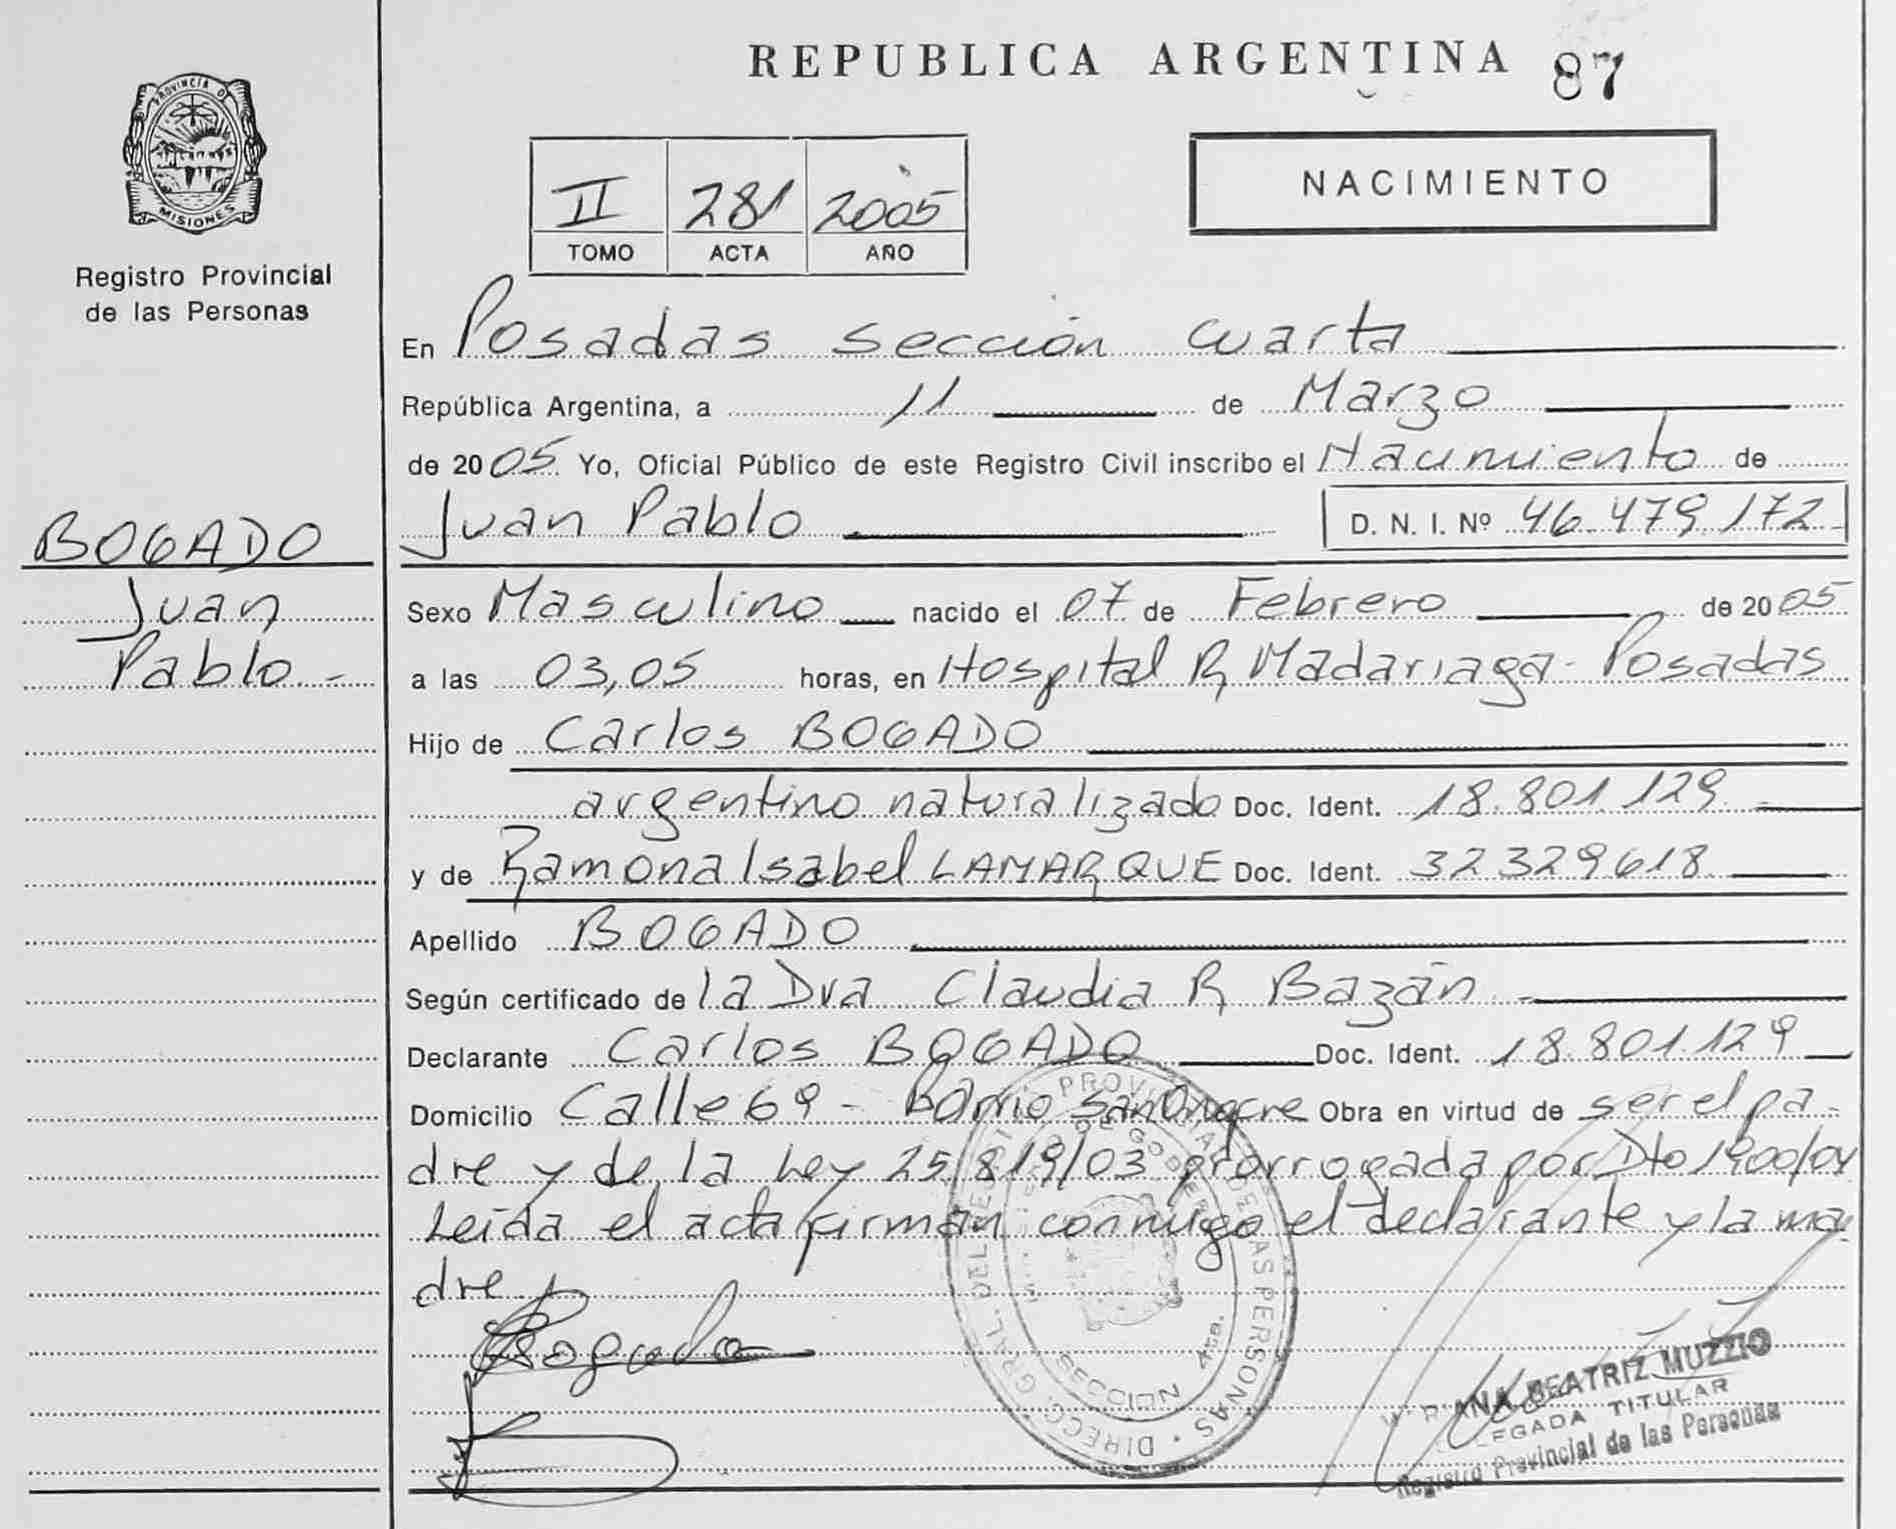 REPUBLICA ARGENTINA 87
PROVINCIA DE
MISIONES
Registro Provincial
de las Personas
II 281 2005
TOMO ACTA AÑO
NACIMIENTO
En Posadas sección cuarta
República Argentina, a 11 de Marzo
de 2005 Yo, Oficial Público de este Registro Civil inscribo el Nacimiento de
Juan Pablo D. N. I. Nº 46.479.172
BOGADO
Juan
Pablo.-
Sexo Masculino nacido el 07 de Febrero de 2005
a las 03,05 horas, en Hospital R Madariaga - Posadas
Hijo de Carlos BOGADO
argentino naturalizado Doc. Ident. 18.801.129
y de Ramona Isabel LAMARQUE Doc. Ident. 32329618
Apellido BOGADO
Según certificado de la Dra Claudia R Bazán
Declarante Carlos BOGADO Doc. Ident. 18.801.129
Domicilio Calle 69 - Barrio San Onofre Obra en virtud de ser el pa-
dre y de la Ley 25.819/03 prorrogada por Dto 1900/04
Leída el acta firman conmigo el declarante y la ma
dre
Bogado
DIRECC. GRAL. DEL REG. PROVINCIAL DE LAS PERSONAS
SECCION 4ta.
BEATRIZ MUZZIO
TITULAR
Registro Provincial de las Personas